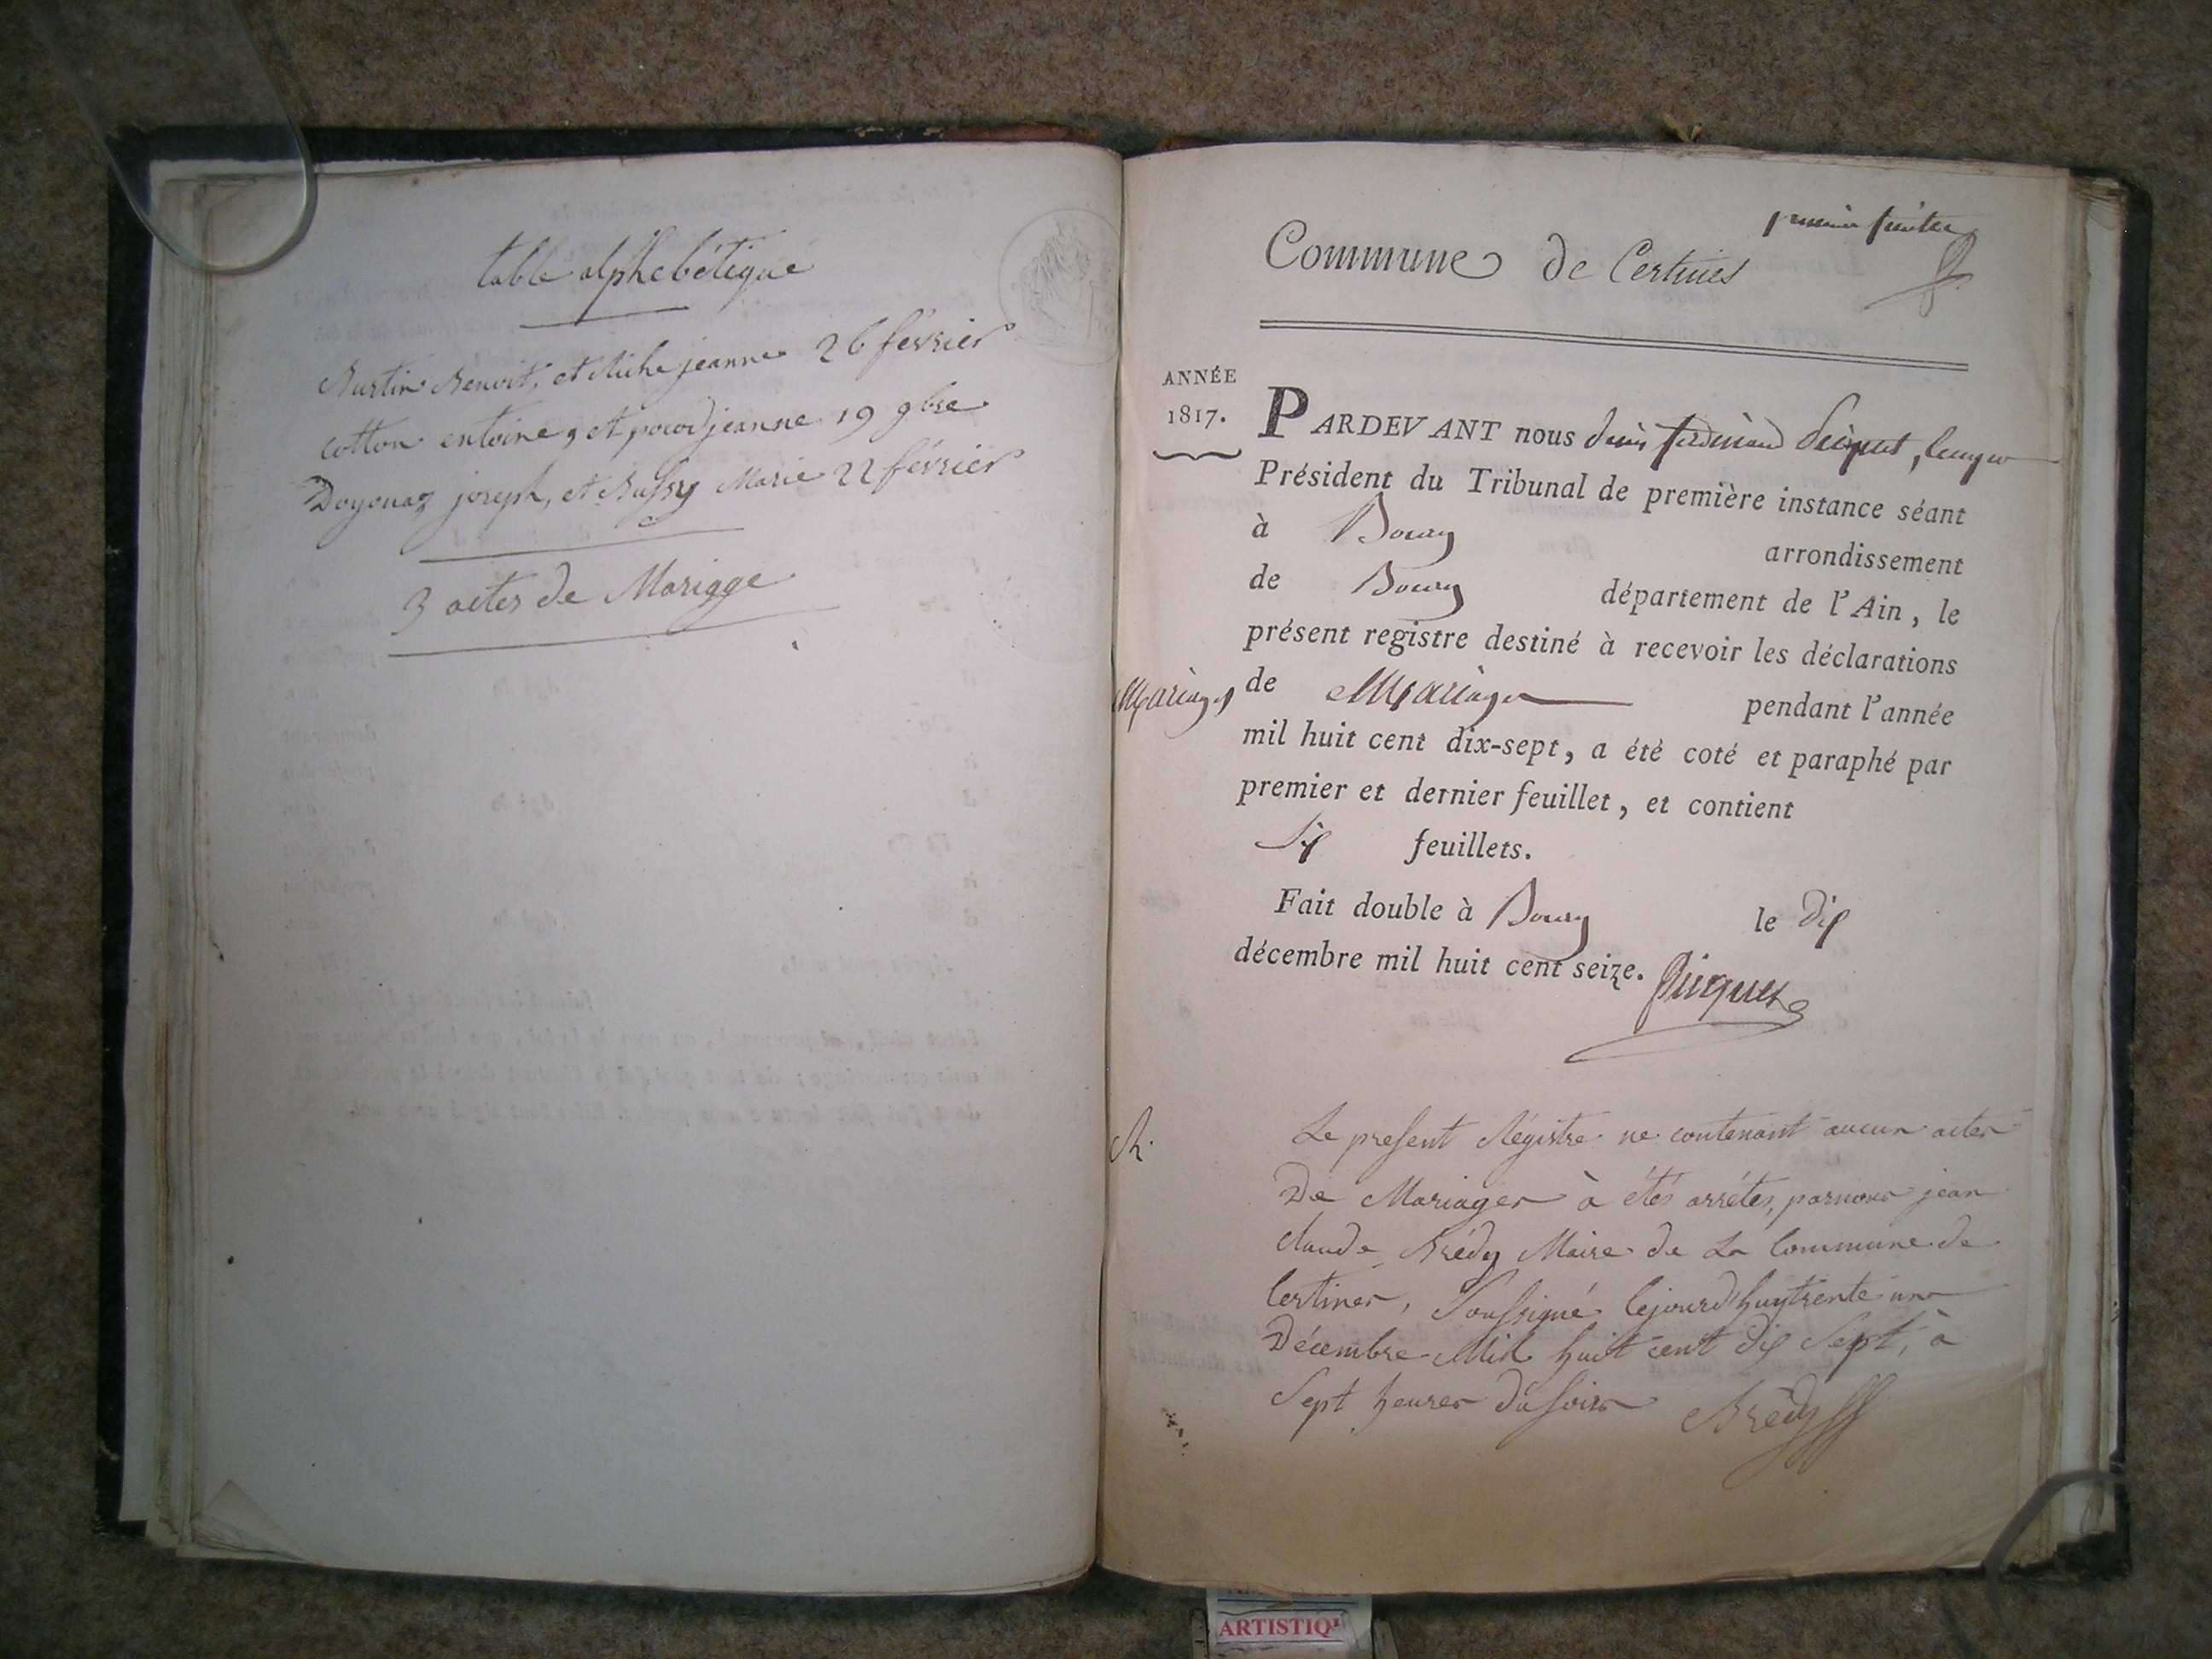 table alphebétique
Burtin Benoit, et Miche jeanne 26 février
cotton entoine, et pocod jeanne 19 9bre
Doyonaz joseph, et Bussy Marie 22 février
3 actes de Mariage
premier feuillet
Commune de Certines
ANNÉE
1817.
PARDEVANT nous denis ferdinand Picquet, 
Président du Tribunal de première instance séant
à Bourg arrondissement
de Bourg département de l'Ain, le
présent registre destiné à recevoir les déclarations
Mariages
de Mariages pendant l'année
mil huit cent dix-sept, a été coté et paraphé par
premier et dernier feuillet, et contient
Six feuillets.
Fait double à Bourg le dix
décembre mil huit cent seize. Picquet
Le present Régistre ne contenant aucun actes
De Mariages à étés arrétes, parnous jean
claude Brédy Maire de La Commune de
Certines, Soussigné Cejourd'huy trente un
Décembre Mil huit cent dix Sept, à
Sept heures du Soir Brédy
ARTISTIQ